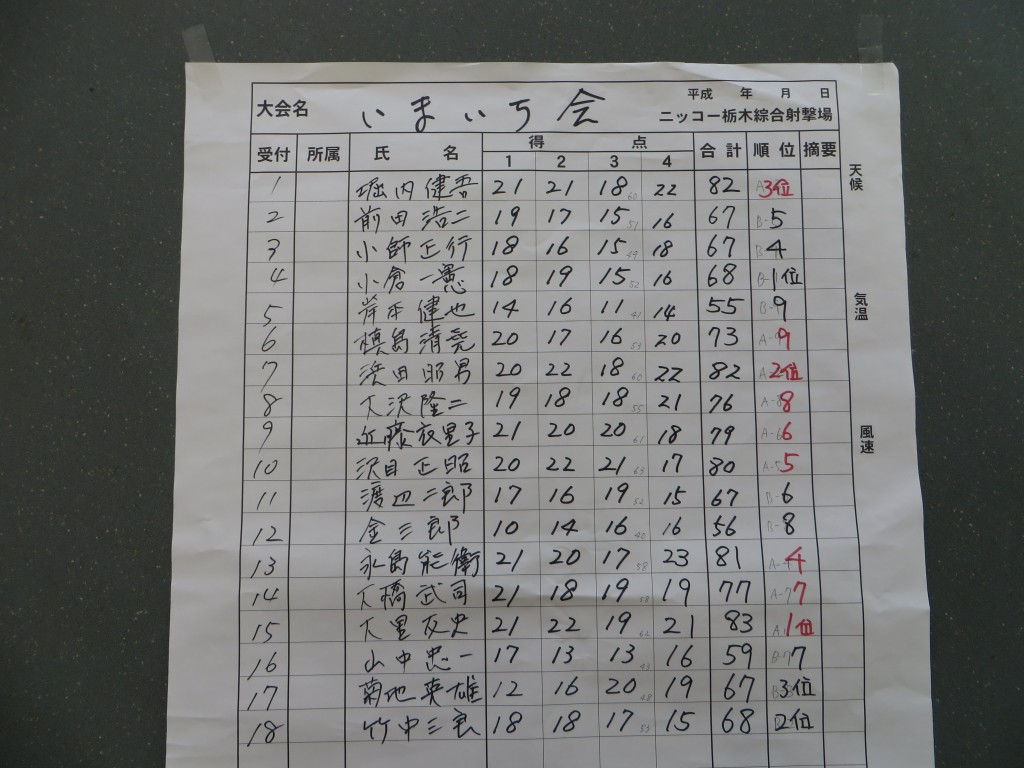 平成 年 月 日
大会名 いまいち会 ニッコー栃木綜合射撃場
受付 所属 氏名 得点 合計 順位 摘要
1 2 3 4
1 堀内健吾 21 21 18 60 22 82 3位
2 前田浩二 19 17 15 51 16 67 B-5
3 小師正行 18 16 15 49 18 67 B-4
4 小倉一憲 18 19 15 52 16 68 B-1位
5 岸本健也 14 16 11 41 14 55 B-9
6 槙島清亮 20 17 16 53 20 73 A-9
7 浜田昭男 20 22 18 60 22 82 A 2位
8 大沢隆二 19 18 18 55 21 76 A-8 8
9 近藤衣里子 21 20 20 61 18 79 A-6 6
10 沢目正昭 20 22 21 63 17 80 A-5 5
11 渡辺二郎 17 16 19 52 15 67 B-6
12 金三郎 10 14 16 40 16 56 B-8
13 永島能衛 21 20 17 58 23 81 A-4 4
14 大橋武司 21 18 19 58 19 77 A-7 7
15 大里友史 21 22 19 62 21 83 A1 1位
16 山中忠一 17 13 13 43 16 59 B-7 7
17 菊地英雄 12 16 20 48 19 67 B3 3位
18 竹中三良 18 18 17 53 15 68 2位
天候
気温
風速